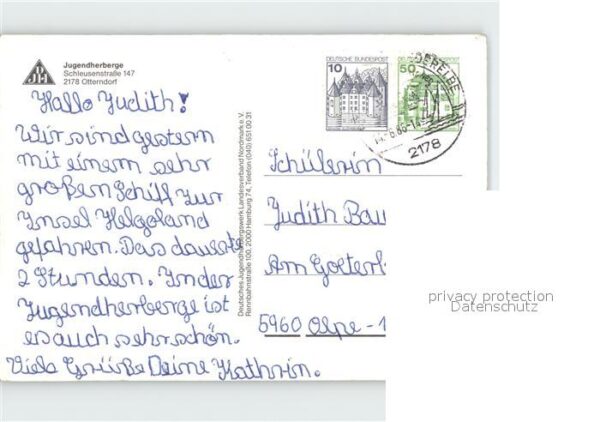 DJH
Jugendherberge
Schleusenstraße 147
2178 Otterndorf
Hallo Judith!
Wir sind gestern
mit einem sehr
großen Schiff zur
Insel Helgoland
gefahren. Das dauerte
2 Stunden. In der
Jugendherberge ist
es auch sehr schön.
Viele Grüße Deine Kathrin.
Deutsches Jugendherbergswerk Landesverband Nordmark e. V.
Rennbahnstraße 100, 2000 Hamburg 74, Telefon (040) 651 00 31
10 DEUTSCHE BUNDESPOST
50
2178
Schülerin
Judith Bau
Am
5960 Olpe-1
privacy protection
Datenschutz